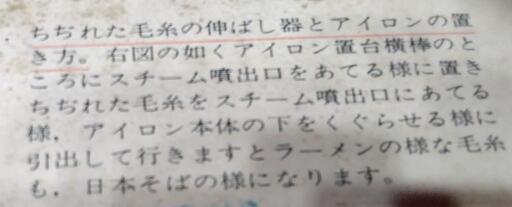 ちぢれた毛糸の伸ばし器とアイロンの置
き方。右図の如くアイロン置台横棒のと
ころにスチーム噴出口をあてる様に置き
ちぢれた毛糸をスチーム噴出口にあてる
様，アイロン本体の下をくぐらせる様に
引出して行きますとラーメンの様な毛糸
も，日本そばの様になります。